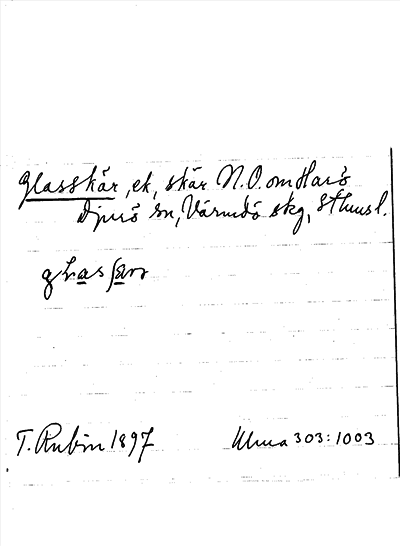 Glasskär, ek, skär N.O. om Harö
Djurö sn, Värmdö skg, Sthmsl.
T. Rubin 1897
Ulma 303:1003